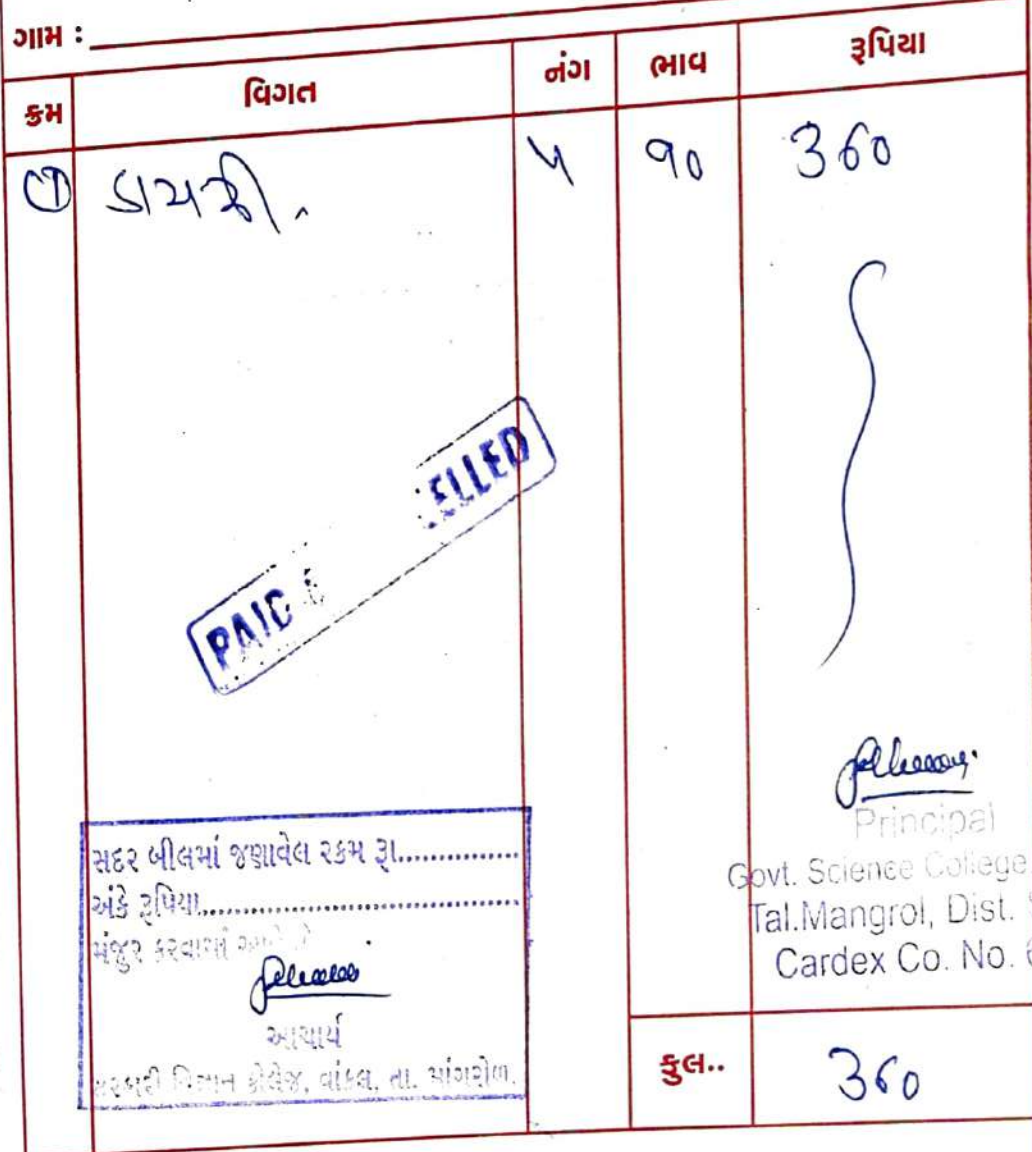 ગામ :
ક્રમ વિગત નંગ ભાવ રૂપિયા
① ડાયરી. ૫ ૭૦ 360
PAID ELLED
સદર બીલમાં જણાવેલ રકમ રૂા...............
અંકે રૂપિયા.......................................
મંજુર કરવામાં
આચાર્ય
સરકારી વિજ્ઞાન કોલેજ, વાંકલ, તા. માંગરોળ.
Principal
Govt. Science College
Tal.Mangrol, Dist.
Cardex Co. No. 6
કુલ.. 360